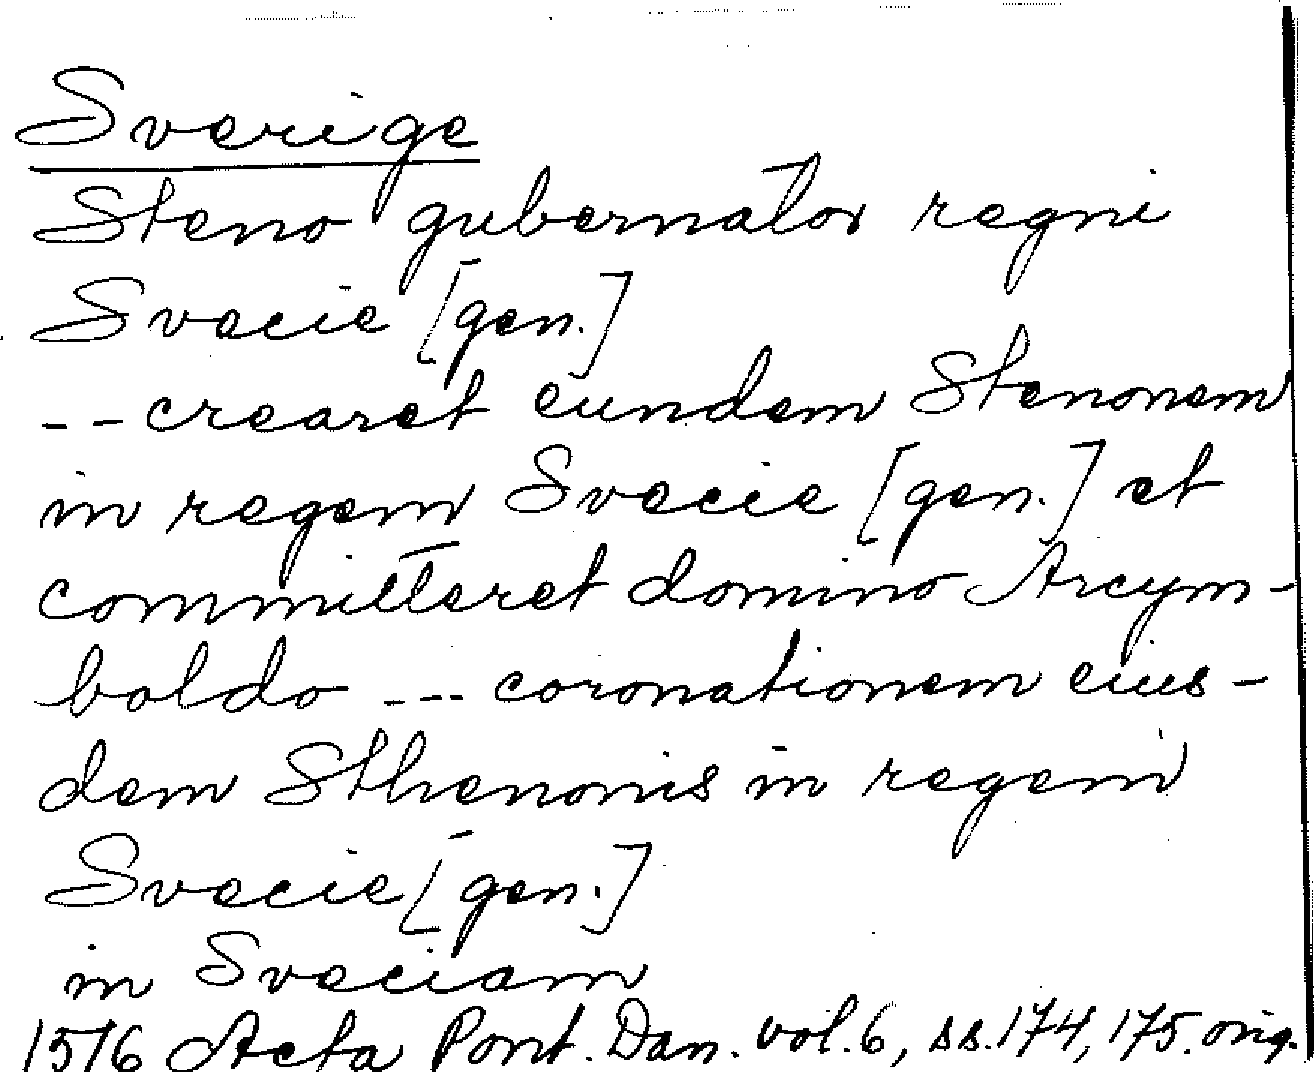 Sverige
Steno gubernator regni
Svecie [gen.]
-- crearet eundem Stenonem
in regem Svecie [gen.] et
committeret domino Arcym-
boldo --- coronationem eius-
dem Sthenonis in regem
Svecie [gen.]
in Sveciam
1516 Acta Pont. Dan. vol. 6, ss. 174, 175. orig.